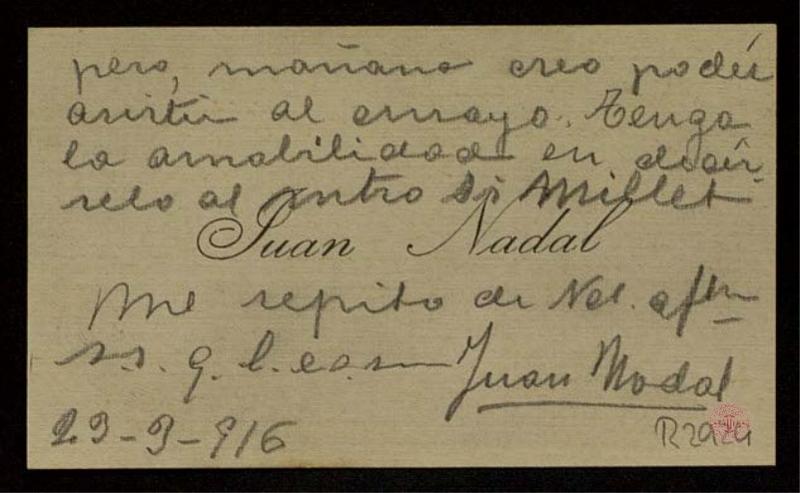 pero, mañana creo poder
asistir al ensayo. Tenga
la amabilidad en decír-
selo al Mtro Sr Millet
Juan Nadal
Me repito de Vd. aftm
s.s. q. b. s. m
Juan Nadal
23-9-916
R2924